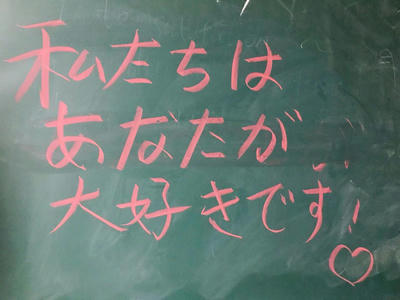 私たちは
あなたが
大好きです!♡